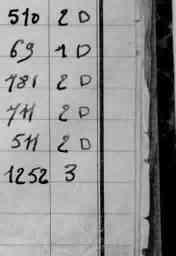 510 2 D
69 1 D
781 2 D
711 2 D
511 2 D
1252 3